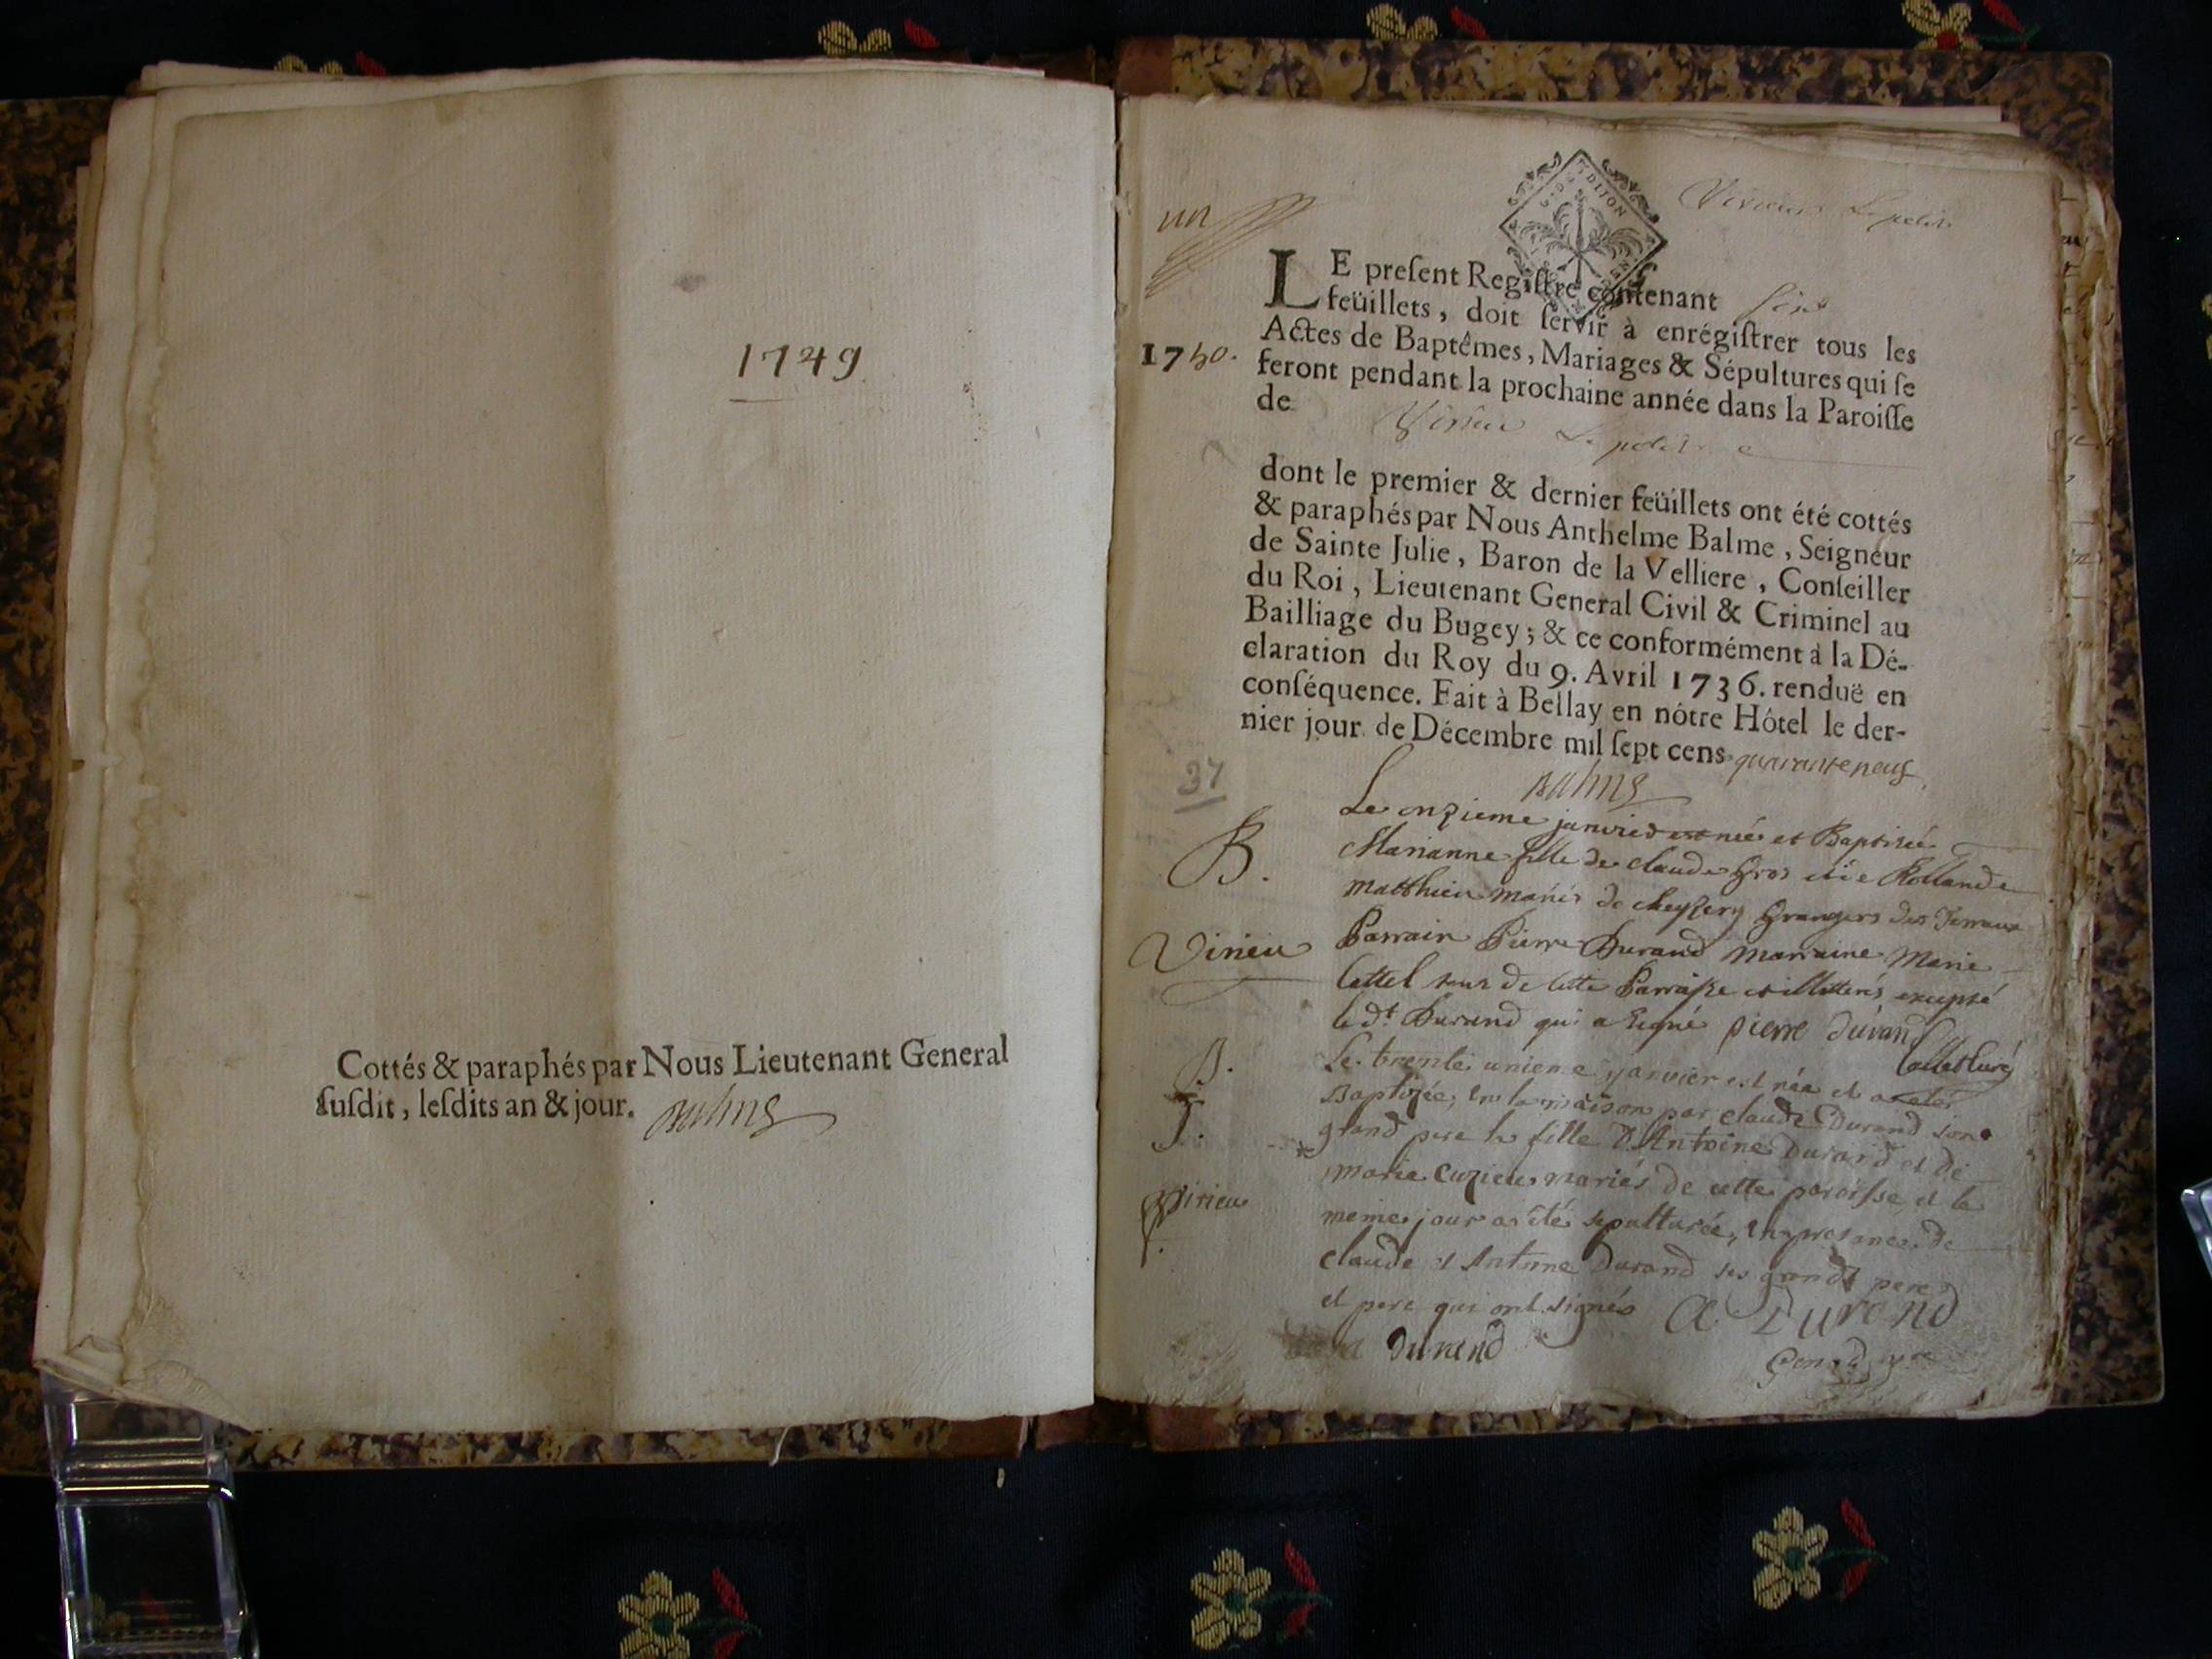 1749
Cottés & paraphés par Nous Lieutenant General
susdit, lesdits an & jour.
un
DIJON
LE present Registre contenant
feüillets, doit servir à enrégistrer tous les
Actes de Baptêmes, Mariages & Sépultures qui se
1750.
feront pendant la prochaine année dans la Paroisse
de Virieu Le petit
dont le premier & dernier feüillets ont été cottés
& paraphés par Nous Anthelme Balme, Seigneur
de Sainte Julie, Baron de la Velliere, Conseiller
du Roi, Lieutenant General Civil & Criminel au
Bailliage du Bugey; & ce conformément à la Dé-
claration du Roy du 9. Avril 1736. renduë en
conséquence. Fait à Bellay en nôtre Hôtel le der-
nier jour de Décembre mil sept cens quarante neuf
37
Le onzieme janvier est née et Baptisée
B.
Marianne fille de claude Gros et de Rollande
matthieu mariés de Grangers des
Virieu
Parrain Pierre Durand marraine Marie
tous de cette Parroisse et illitterés excepté
led.t Durand qui a signé pierre durand
B.
Le trente unieme janvier est née et a été
Baptizée, en la maison par claude Durand son
grand pere la fille d'Antoine Durand et de
marie Cuzieu mariés de cette paroisse, et le
Virieu
meme jour a été sepulturée, en presance de
claude et Antoine Durand ses grand pere
et pere qui ont signés A Durand
durand